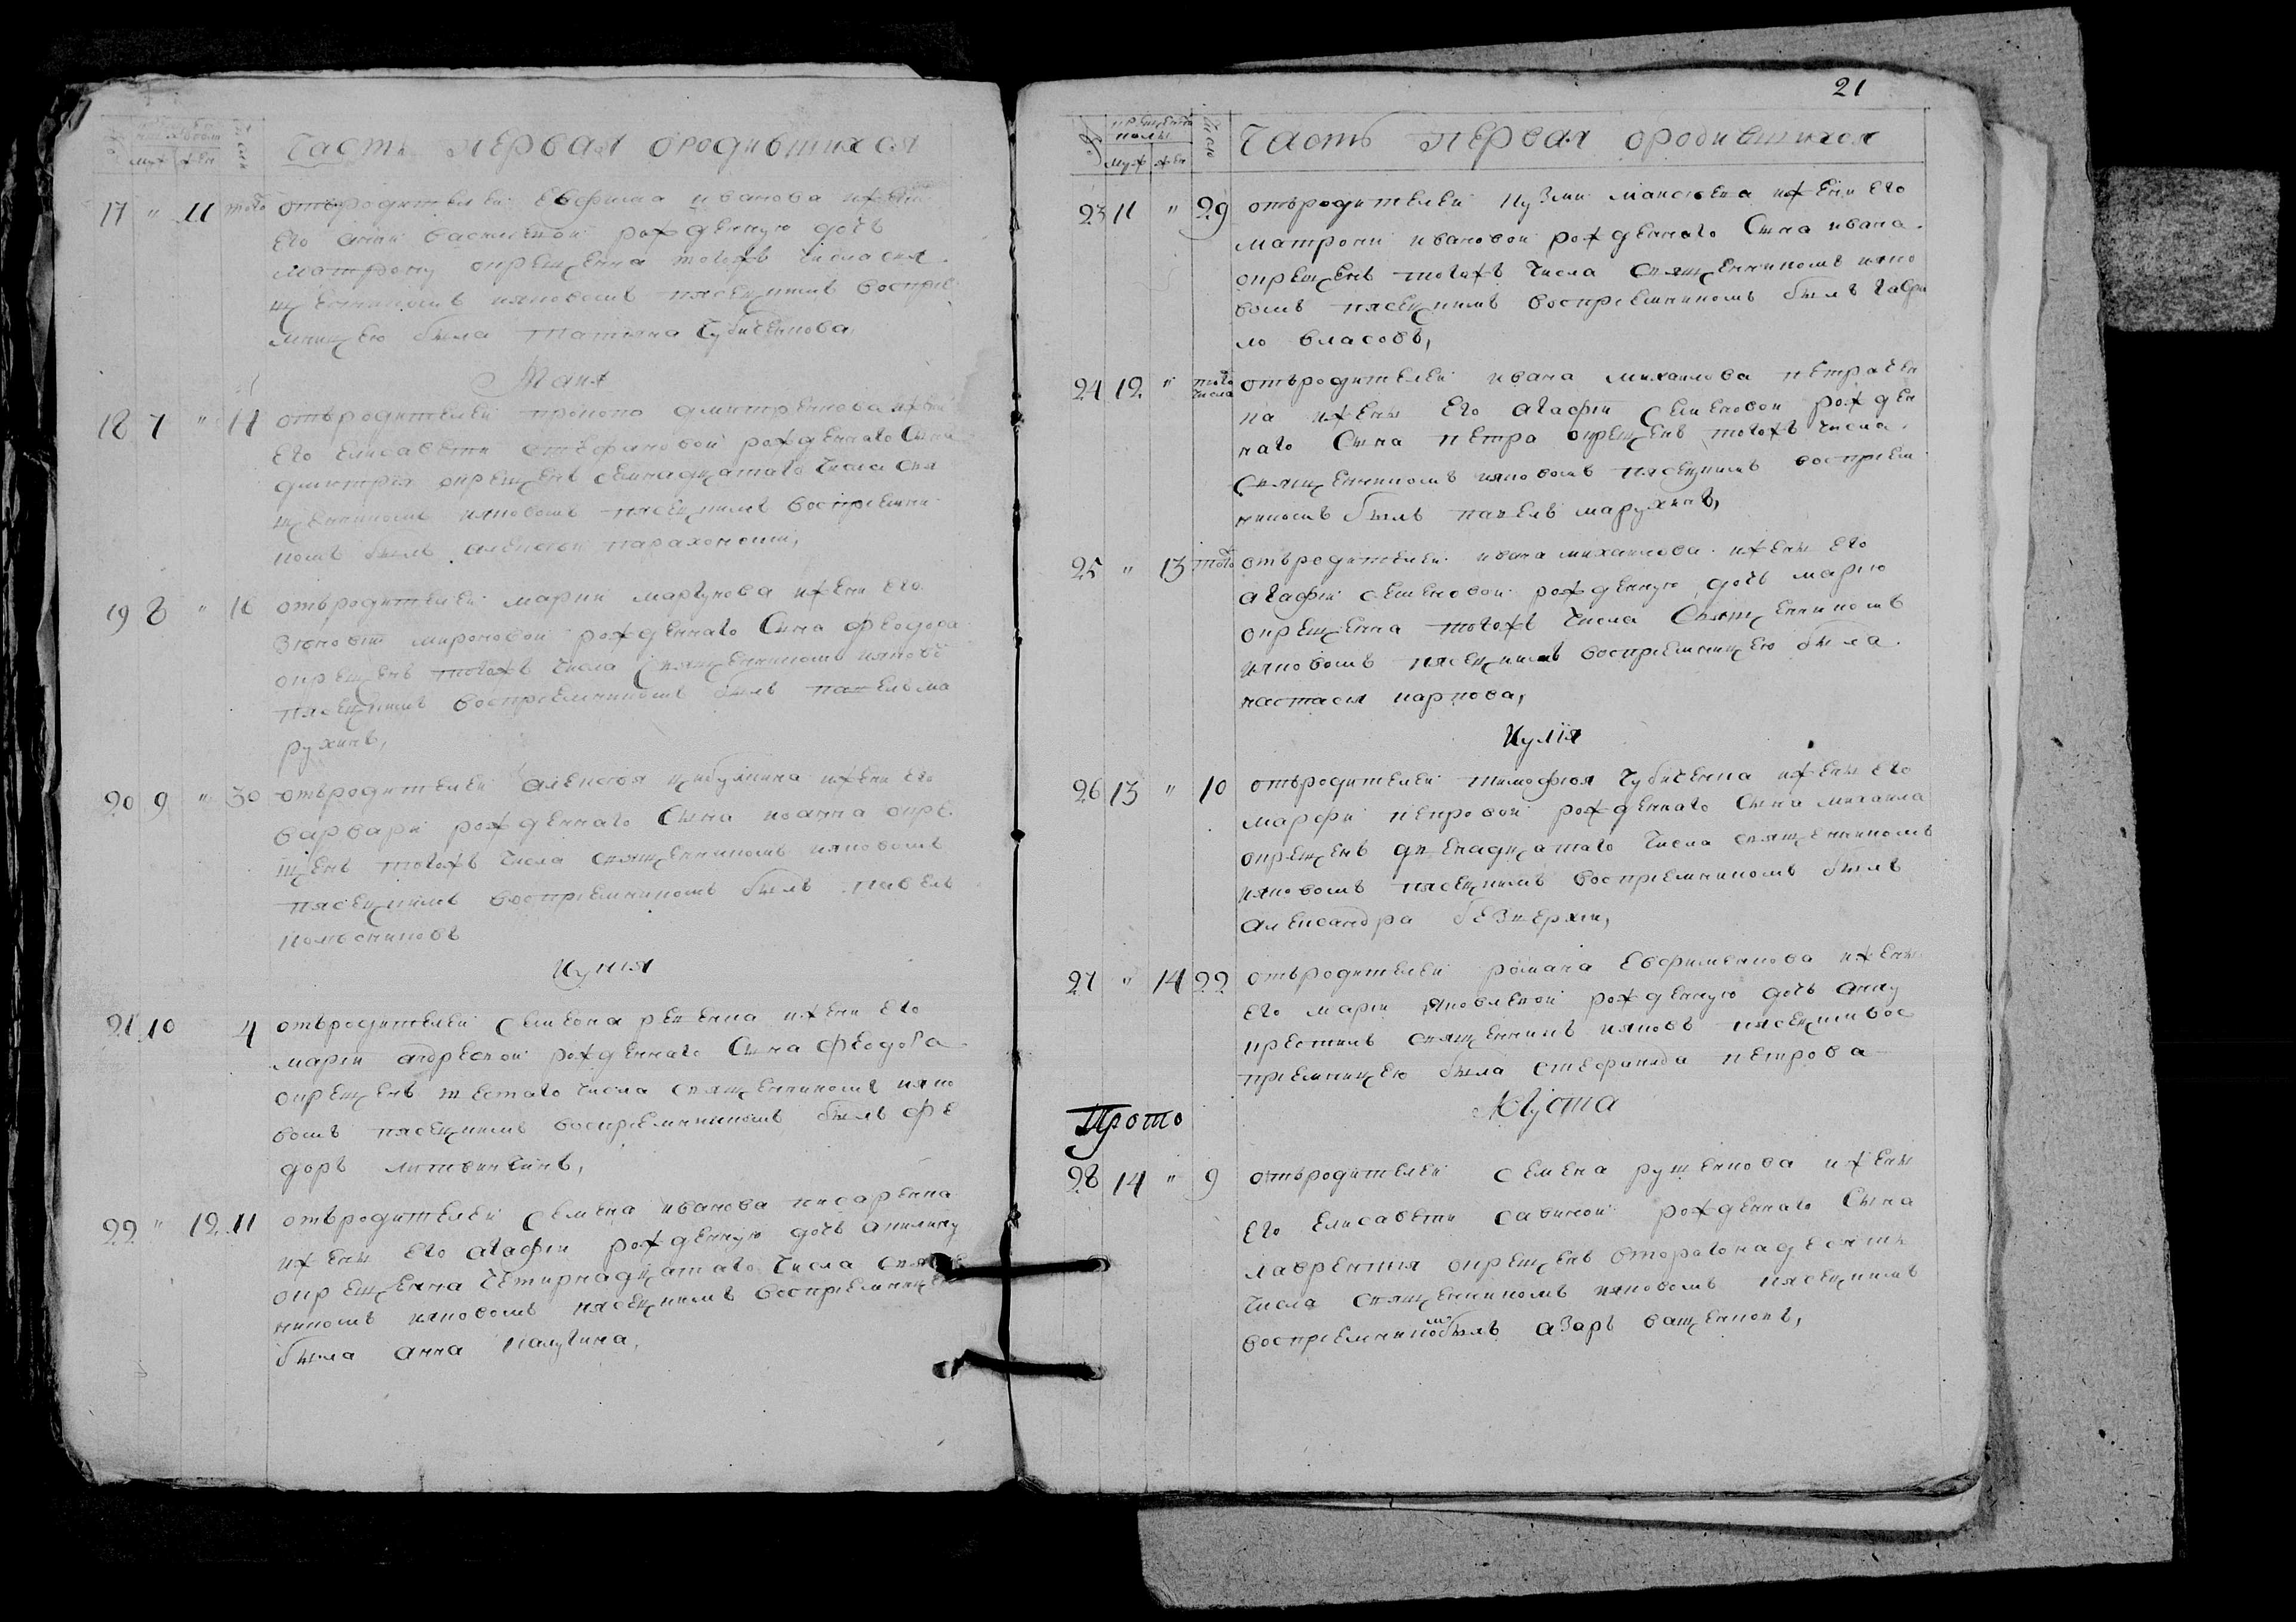 Часть первая ородившихся
муж жен
17 " 11 того отъродителей Евфима иванова ижени
его анни василевой рожденную дочь
матрону окрещенна тогожъ числа свя
щенникомъ иаковомъ пясецкимъ восприе
мницею была татяна Губиченкова,
Маия
18 7 " 14 отъродителей прокопа дмитренкова ижени
его елисавети стефановой рожденнаго Сына
дмитрия окрещенъ семнадцатаго числа свя
щенникомъ иаковомъ пясецкимъ восприемни
комъ былъ алексей
19 8 " 16 отъродителей марки маргунова ижени его
мироновой рожденнаго Сына феодора
окрещенъ тогожъ числа священникомъ иаково
пясецкимъ восприемникомъ былъ павелъ ма
рухинъ,
20 9 " 30 отъродителей алексея цибулкина ижени его
варвари рожденнаго Сына иоанна окре
щенъ тогожъ числа священникомъ иаковомъ
пясецкимъ восприемникомъ былъ павелъ
колесниковъ
Иуния
21 10 4 отъродителей семиона ревенка ижени его
марии андреевой рожденнаго Сына феодора
окрещенъ шестаго числа священникомъ иако
вомъ пясецкимъ восприемникомъ былъ фе
доръ литвинчинъ,
22 " 12 11 отъродителей семена иванова писаренка
ижены его агафии рожденную дочь акилину
окрещенна четирнадцатаго числа свяще
нникомъ иаковомъ пясецкимъ восприемницею
была анна калугина,
21
крещенія полы число
муж жен
Часть первая ородившихся
23 11 " 29 отъродителей кузми моисеева ижени его
матрони ивановой рожденнаго Сына ивана
окрещенъ тогожъ числа священникомъ иако
вомъ пясецкимъ восприемникомъ былъ гаври
ло власовъ,
24 12 " того числа отъродителей ивана михаилова петрачен
ка ижены его агафии семеновой рожден
наго Сына петра окрещенъ тогожъ числа
священникомъ иаковомъ пясецкимъ восприем
никомъ былъ павелъ марухинъ,
25 " 13 того отъродителей ивана михаилова ижены его
агафии семеновой рожденную дочь марию
окрещенна тогожъ числа Священникомъ
иаковомъ пясецкимъ восприемницею была
настасия карпова,
Иулія
26 13 " 10 отъродителей тимофея Губиченка ижены его
марфи петровой рожденнаго Сына михаила
окрещенъ двенадцатаго числа священникомъ
иаковомъ пясецкимъ восприемникомъ былъ
александра безверхи,
27 " 14 22 отъродителей романа Евфимианова ижены
его марии яковлевой рожденную дочь анну
крестилъ священникъ иаковъ пясецки вос
приемницею была стефанида петрова
Августа
Прото
28 14 " 9 отъродителей семена рушенкова ижены
его елисавети савиной рожденнаго Сына
лаврентия окрещенъ второгонадесять
числа священникомъ иаковомъ пясецкимъ
восприемникомъ былъ азаръ ващенковъ,